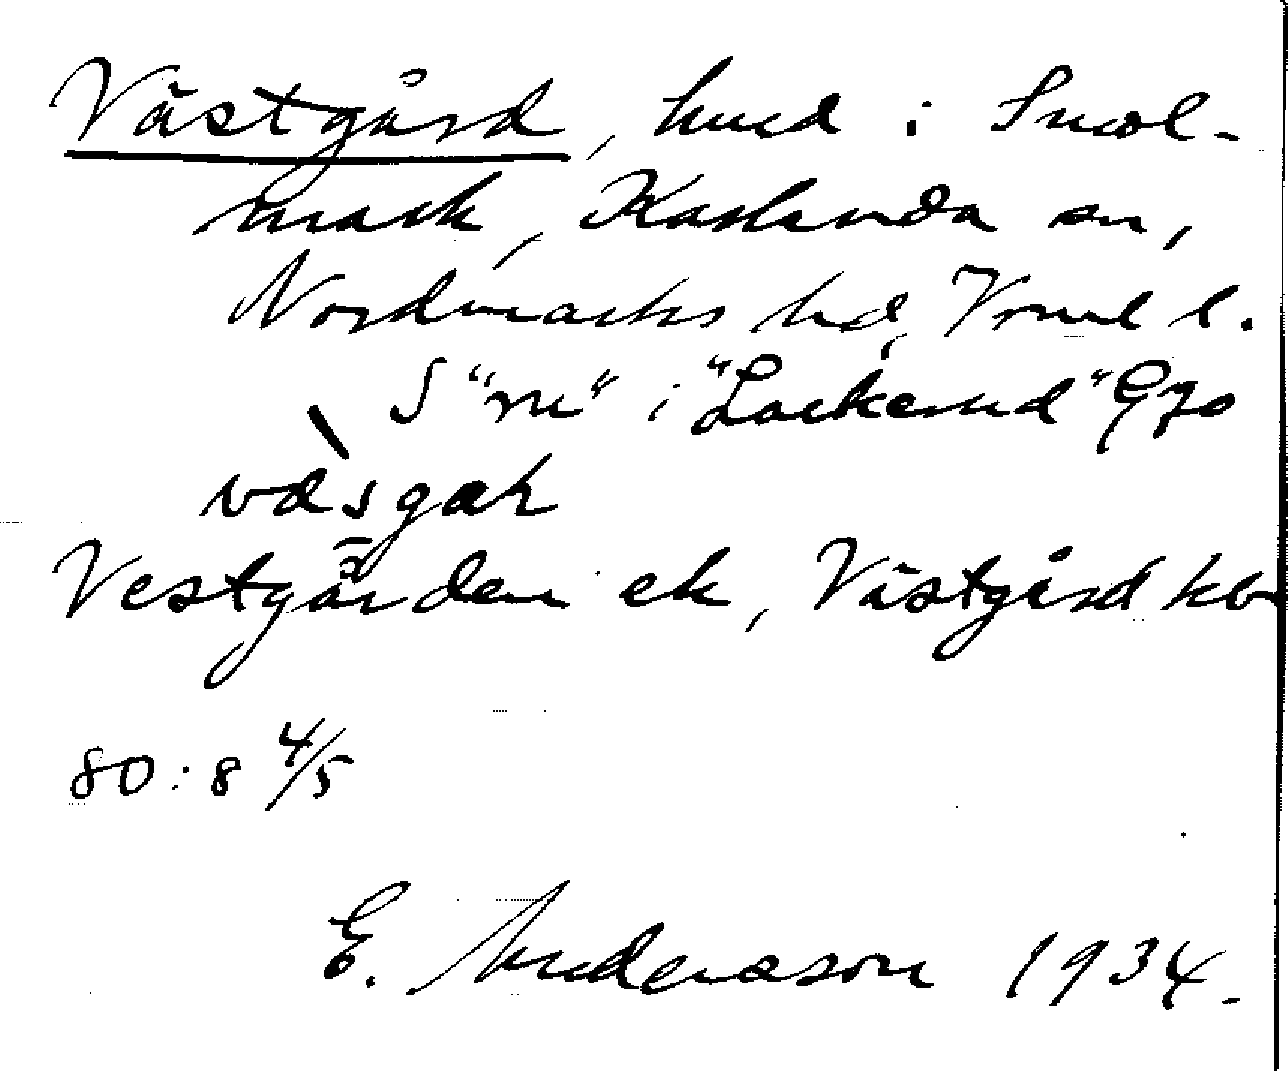 Västgård, hmd i Smol-
mark, Karlanda sn,
Nordmarks hd, Vrml l.
S "m" i "Lackerud" Gg 70
väsgaɽ
Vestgården ek, Västgård kbr
80:8 4/5
E. Andersson 1934.